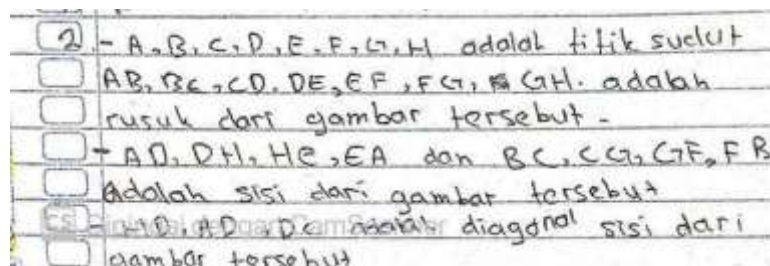 2. - A, B, C, D, E, F, G, H adalah titik sudut
AB, BC, CD, DE, EF, FG, GH. adalah
rusuk dari gambar tersebut.
- AD, DH, HE, EA dan BC, CG, GF, FB
adalah sisi dari gambar tersebut
- HD, AD, DC adalah diagonal sisi dari
gambar tersebut